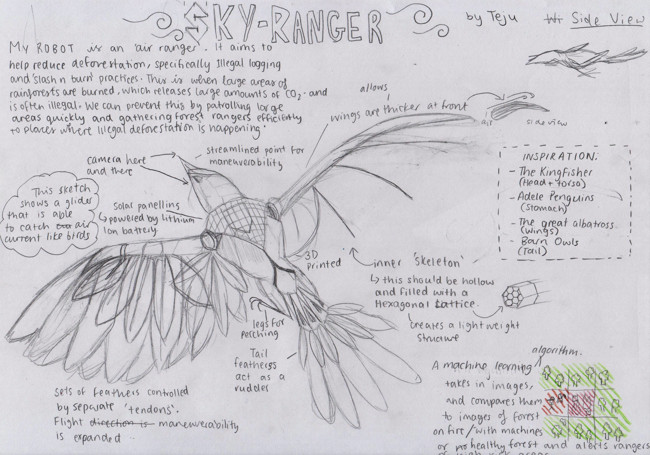 SKY-RANGER
by Teju
Side View
My ROBOT is an 'air ranger'. It aims to
help reduce deforestation, specifically Illegal logging
and 'slash n burn' practices. This is when large areas of
rainforests are burned, which releases large amounts of CO2. and
is often illegal. We can prevent this by patrolling large
areas quickly and gathering forest rangers efficiently
to places where Illegal deforestation is happening.
allows
wings are thicker at front
air
side view
streamlined point for
maneuverability
camera here
and there
This sketch
shows a glider
that is able
to catch air
current like birds
Solar panelling
powered by lithium
Ion battery.
INSPIRATION:
- The Kingfisher
(Head + torso)
- Adele Penguins
(Stomach)
- The great albatross
(wings)
- Barn Owls
(Tail)
3D
printed
inner 'skeleton'
this should be hollow
and filled with a
Hexagonal Lattice.
creates a lightweight
structure
legs for
perching
Tail
feathers
act as a
rudder
Sets of feathers controlled
by separate 'tendons'.
Flight direction is maneuverability
is expanded
algorithm.
A machine learning
takes in images,
and compares them
to images of forest
on fire/with machines
or healthy forest and alerts rangers